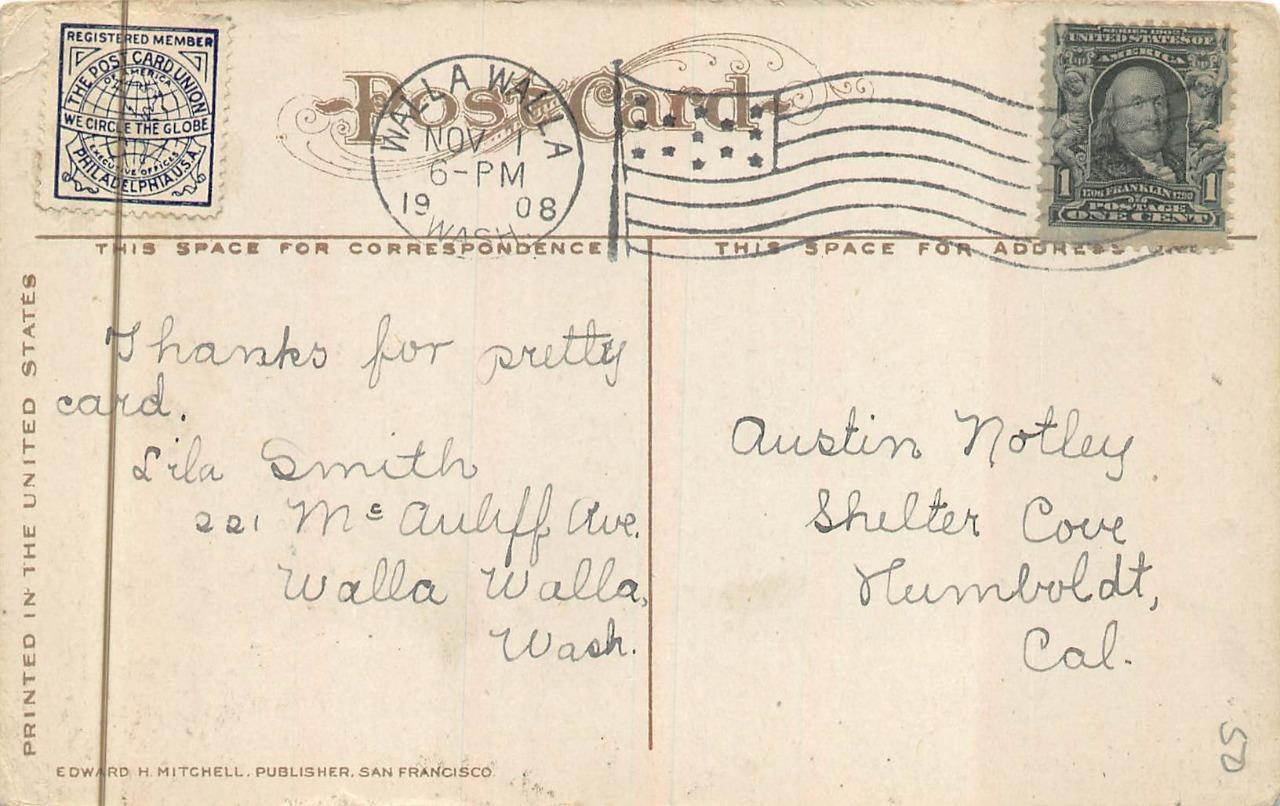 REGISTERED MEMBER
THE POST CARD UNION
OF AMERICA
WE CIRCLE THE GLOBE
EXECUTIVE OFFICES
PHILADELPHIA U.S.A.
Post Card
WALLA WALLA
NOV 1
6-PM
19 08
WASH.
SERIES 1902
UNITED STATES OF
AMERICA
1 1706 FRANKLIN 1790 1
POSTAGE
ONE CENT
THIS SPACE FOR CORRESPONDENCE
THIS SPACE FOR ADDRESS
PRINTED IN THE UNITED STATES
Thanks for pretty
card.
Lila Smith
221 Mc Auliff Ave.
Walla Walla,
Wash.
Austin Notley
Shelter Cove
Humboldt,
Cal.
EDWARD H. MITCHELL, PUBLISHER, SAN FRANCISCO.